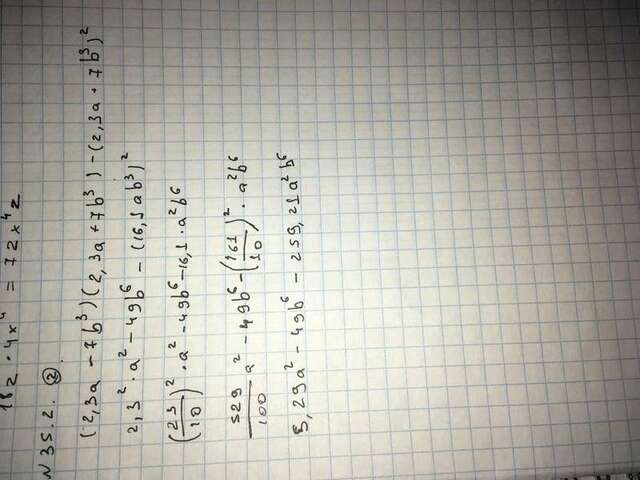 18z · 4x⁴ = 72x⁴z
N 35.2. ②.
(2,3a - 7b³)(2,3a + 7b³) - (2,3a + 7b³)²
2,3² · a² - 49b⁶ - (16,1ab³)²
(23/10)² · a² - 49b⁶ - 16,1 · a²b⁶
529/100 a² - 49b⁶ - (161/10)² · a²b⁶
5,29a² - 49b⁶ - 259,21a²b⁶